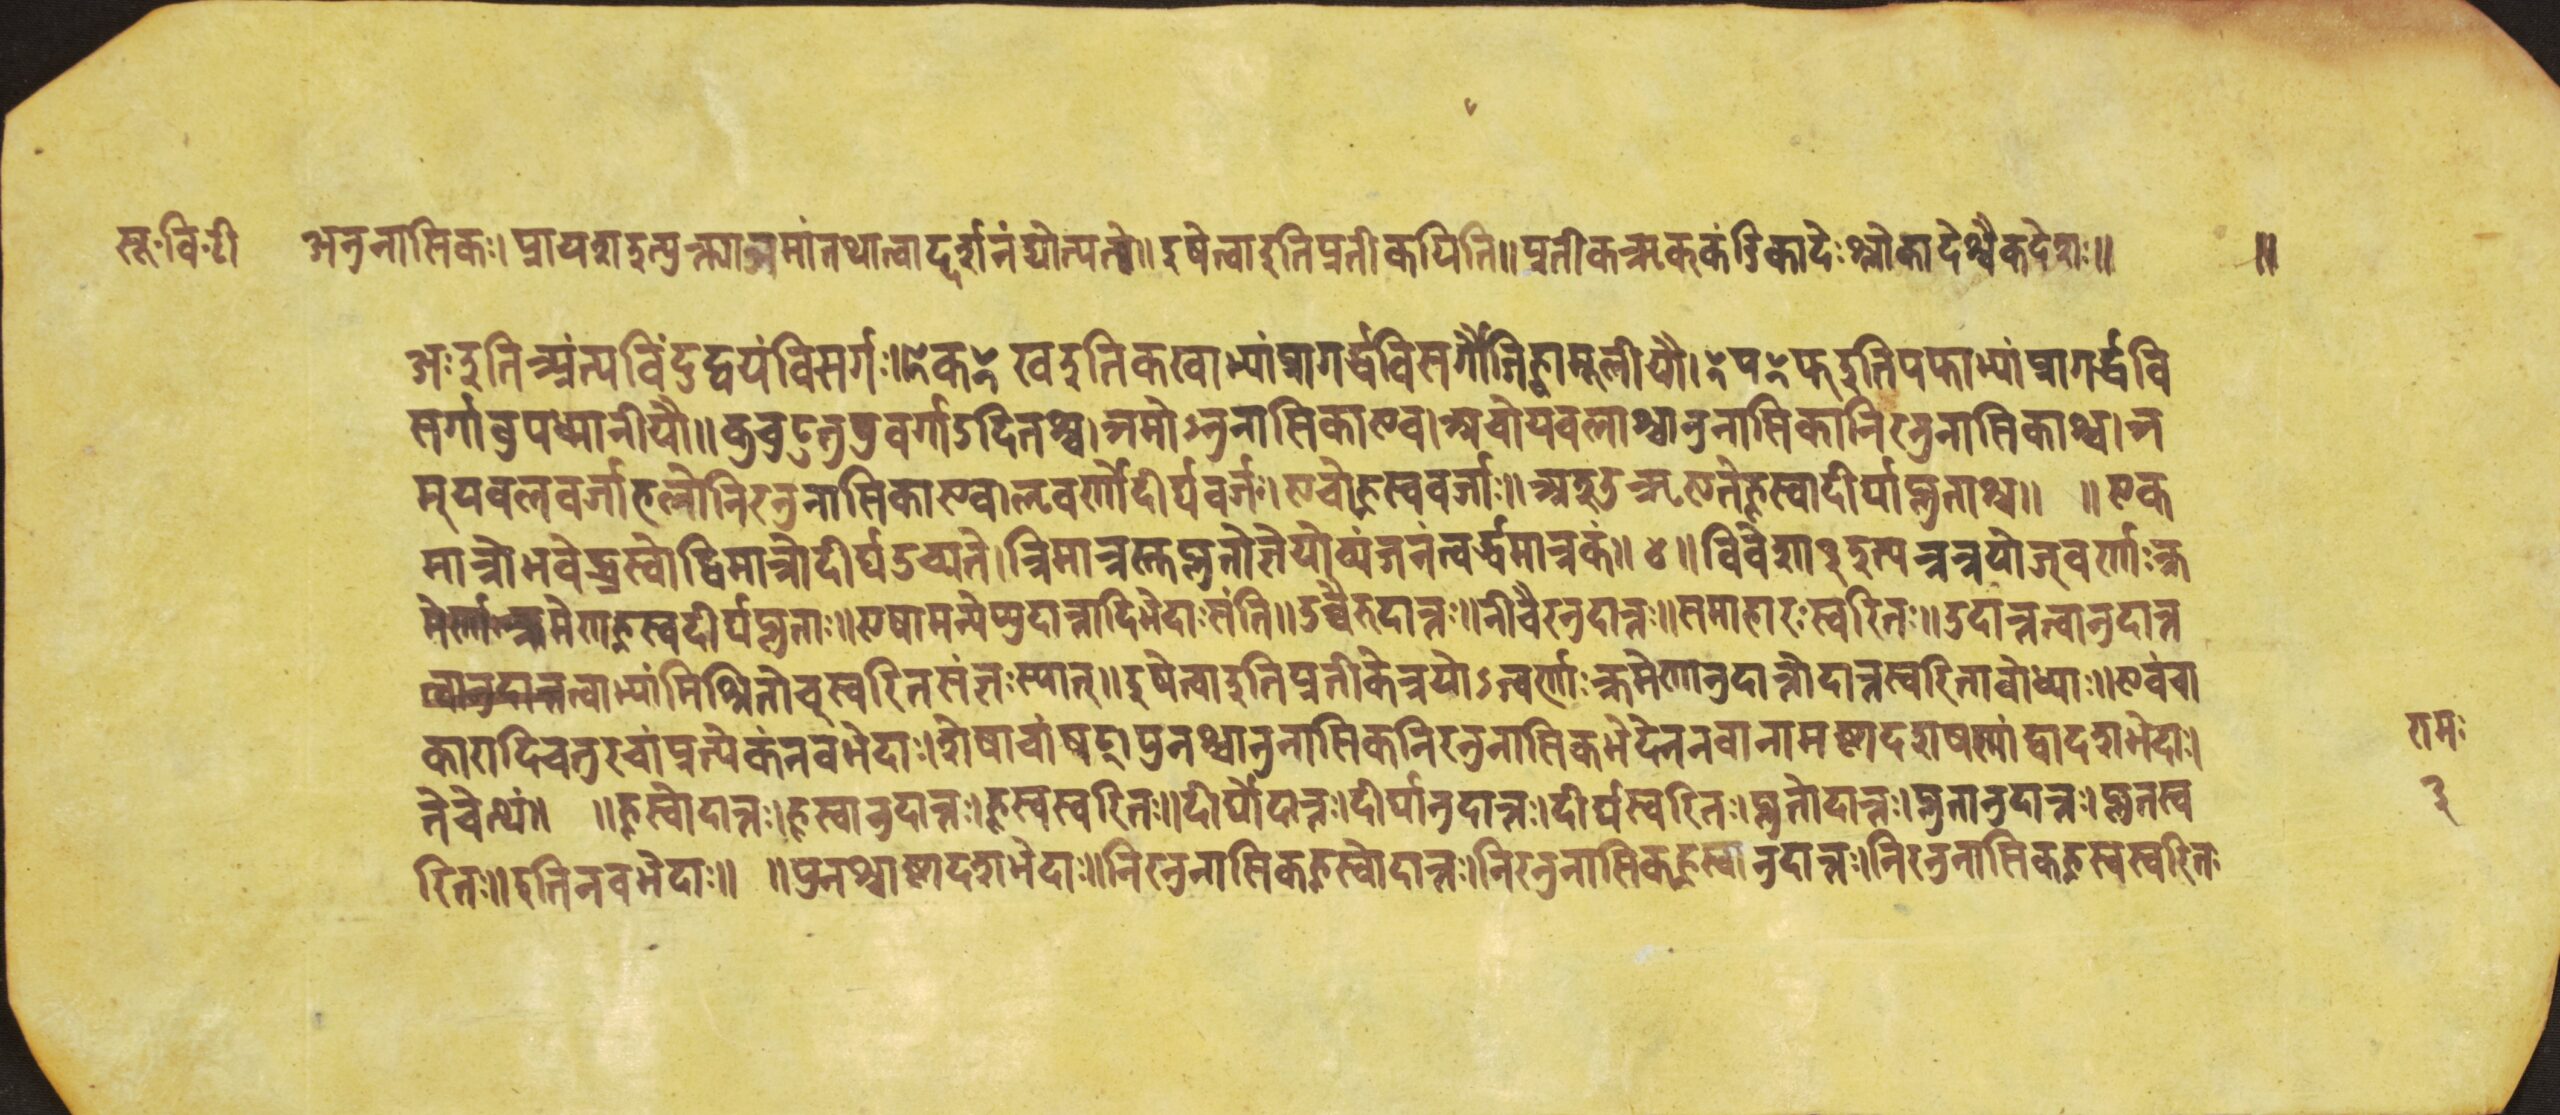 सू॰वि॰टी अनुनासिकः। प्रायशइत्युक्त्या ञमांतथात्वाददर्शनंद्योत्यते॥ इषेत्वाइतिप्रतीकयिति॥ प्रतीकऋक्कंडिकादेःश्लोकादेश्चैकदेशः॥ ॥
अःइतिअंत्यबिंदुद्वयंविसर्गः।ꣳकꣳखइतिकखाभ्यांप्रागर्द्धविसर्गौजिह्वामूलीयौ।ꣳपꣳफइतिपफाभ्यांप्रागर्द्धवि
सर्गावुपध्मानीयौ॥ कुचुटुतुपुवर्गाउदितश्च।ञमोऽनुनासिकाएव।अचोयवलाश्चानुनासिकानिरनुनासिकाश्च।ञ
म्यवलवर्जाहलोनिरनुनासिकाएव।ऌवर्णोदीर्घवर्जः।एचोह्रस्ववर्जाः॥ अइउऋएतेह्रस्वादीर्घाप्लुताश्च॥ ॥एक
मात्रोभवेद्ध्रस्वोद्विमात्रोदीर्घउच्यते।त्रिमात्रस्तुप्लुतोज्ञेयोव्यंजनंत्वर्द्धमात्रकं॥ ४॥ विवेशा३इत्यत्रत्रयोज्वर्णाःक्र
मेर्णाःक्रमेणह्रस्वदीर्घप्लुताः॥एषामन्येप्युदात्तादिभेदाःसंति॥उच्चैरुदात्तः॥नीचैरनुदात्तः॥समाहारःस्वरितः॥उदात्तत्वानुदात्त
त्वानुदात्तत्वाभ्यांमिश्रितोच्स्वरितसंज्ञःस्यात्॥इषेत्वाइतिप्रतीकेत्रयोऽज्वर्णाःक्रमेणानुदात्तोदात्तस्वरिताबोध्याः॥एवंचा
कारादिचतुरचांप्रत्येकंनवभेदाः।शेषाचांषट्।पुनश्चानुनासिकनिरनुनासिकभेदेननवानामष्टादशषण्णांद्वादशभेदाः।
तेचेत्थं॥ ॥ह्रस्वोदात्तः।ह्रस्वानुदात्तः।ह्रस्वस्वरितः॥दीर्घोदात्तः।दीर्घानुदात्तः।दीर्घस्वरितः।प्लुतोदात्तः।प्लुतानुदात्तः।प्लुतस्व
रितः॥इतिनवभेदाः॥ ॥पुनश्चाष्टादशभेदाः॥निरनुनासिकह्रस्वोदात्तः।निरनुनासिकह्रस्वानुदात्तः।निरनुनासिकह्रस्वस्वरितः
रामः
३